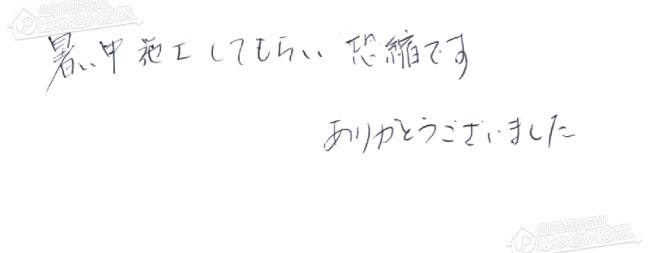 暑い中施工してもらい恐縮です
ありがとうございました